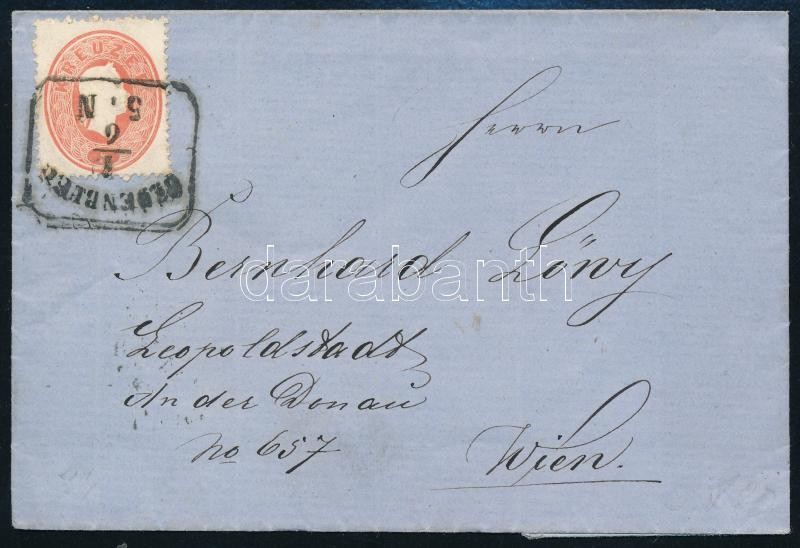 KREUZER
5. N
6
1
OEDENBURG
Herrn
Bernhard Löwy
darabanth
Leopoldstadt
An der Donau
No 657
Wien.